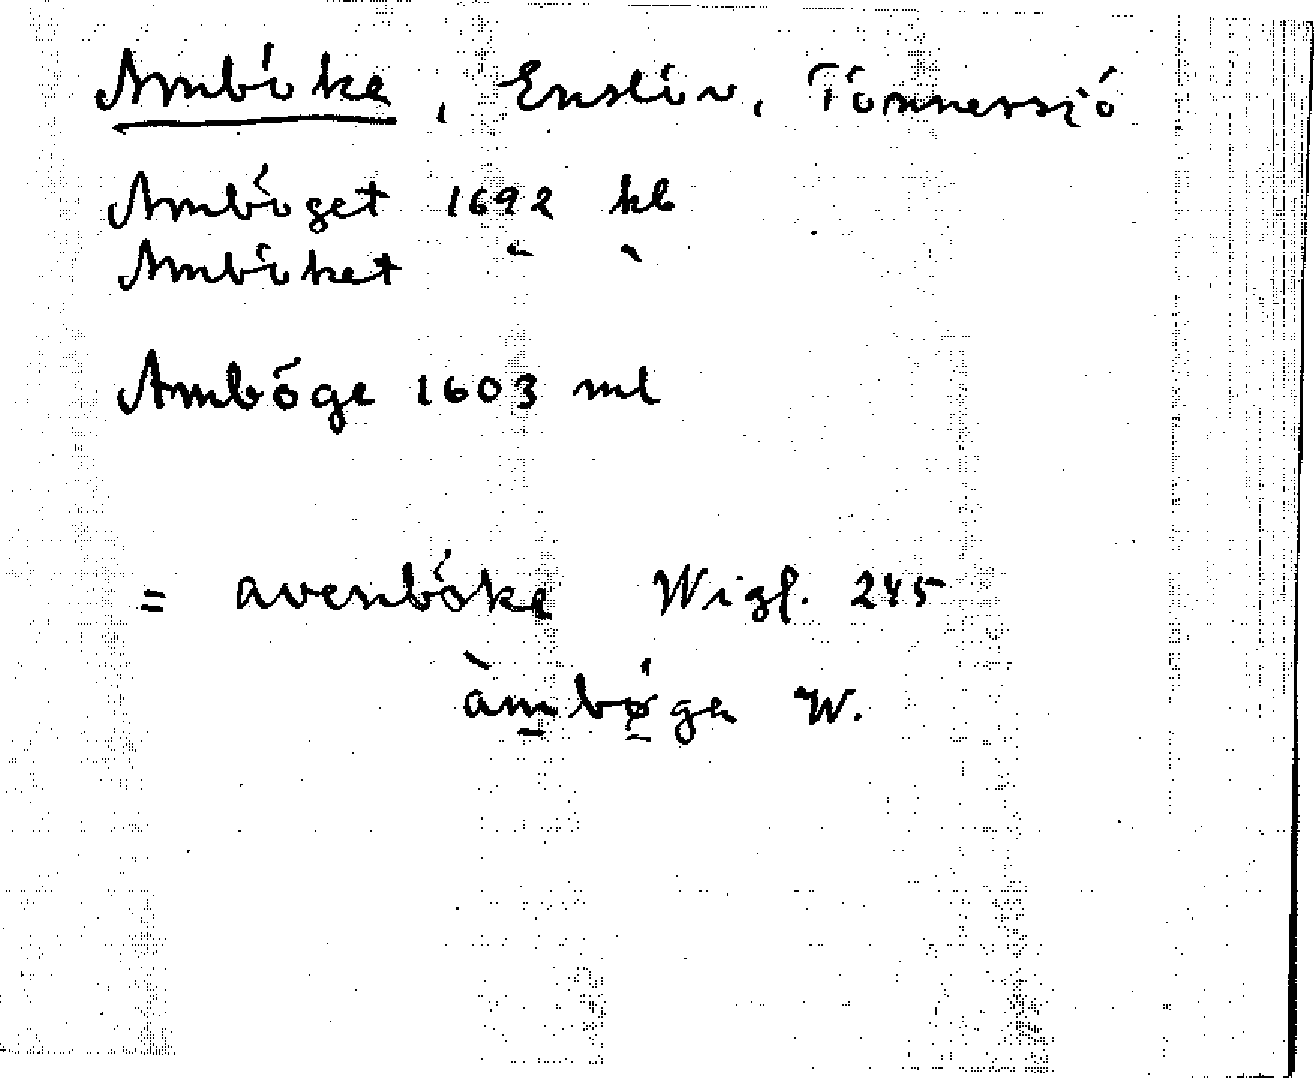 Amböke, Enslöv, Tönnersjö
Amböget 1692 kb
Amböket " "
Amböge 1603 ml
= avenböke Wigf. 245
àmbøgen W.